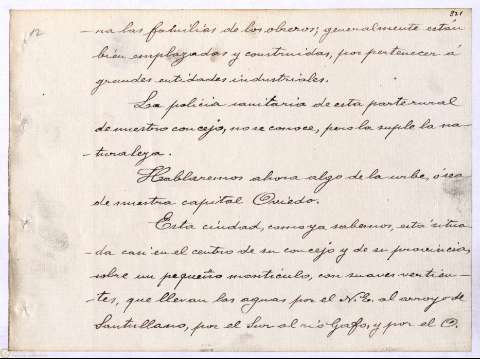 321
12
-na las familias de los obreros; generalmente están
bien emplazadas y construidas, por pertenecer á
grandes entidades industriales.
La policia sanitaria de esta parte rural
de nuestro concejo, no se conoce, pero la suple la na-
-turaleza.
Hablaremos ahora algo de la urbe, ó sea
de nuestra capital Oviedo.
Esta ciudad, como ya sabemos, está situa-
da casi en el centro de su concejo y de su provincia,
sobre un pequeño montículo, con suaves vertien-
-tes, que llevan las aguas por el N.E. al arroyo de
Santullano, por el Sur al rio Gafo, y por el O.